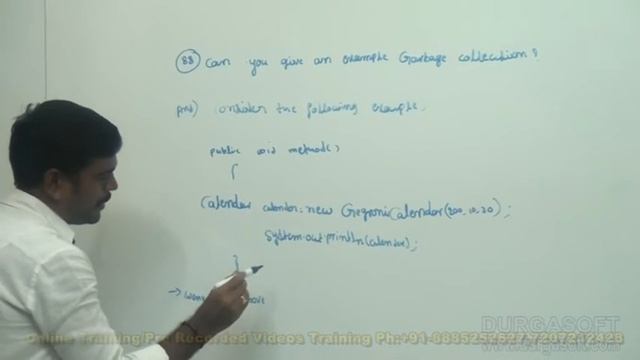 88 Can you give an example Garbage collection?
Ans) Consider the following example.
public void method()
{
Calender calender=new GregronicCalendar(200,10,20);
System.out.println(calender);
}
→
DURGASOFT
Online Training Pre Recorded Videos Training Ph:+91-8885252627,7207212428
www.durgasoft.com